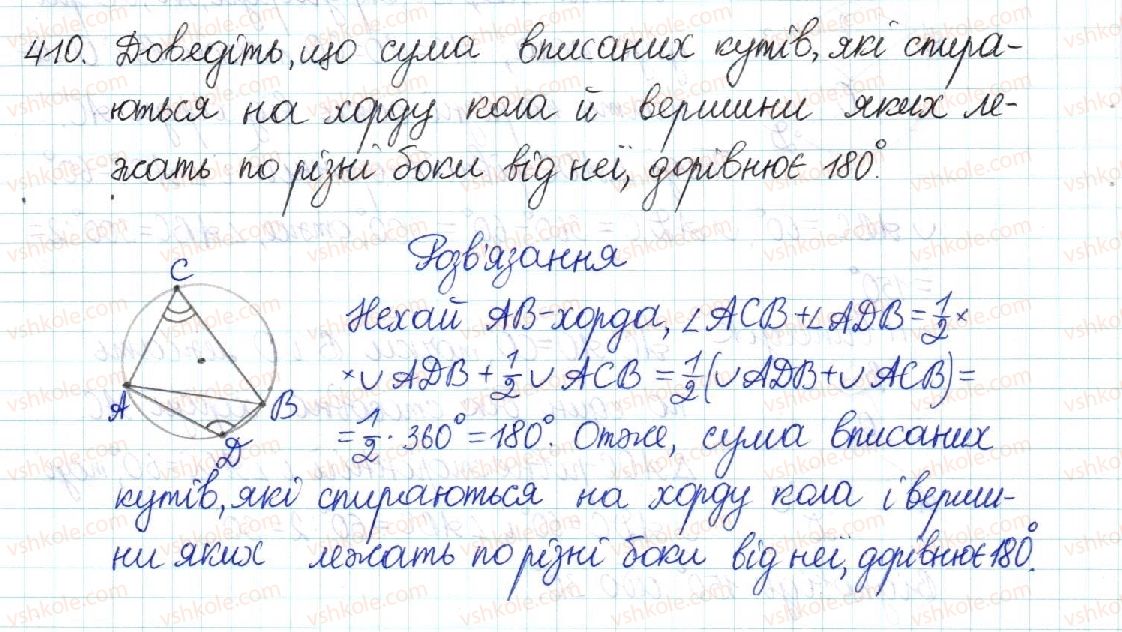 410. Доведіть, що сума вписаних кутів, які спира-
ються на хорду кола й вершини яких ле-
жать по різні боки від неї, дорівнює 180°.
Розв'язання
C
Нехай AB-хорда, ∠ACB+∠ADB=1/2×
×∪ADB+1/2∪ACB=1/2(∪ADB+∪ACB)=
A
B
=1/2·360°=180°. Отже, сума вписаних
D
кутів, які спираються на хорду кола і верши-
ни яких лежать по різні боки від неї, дорівнює 180°.